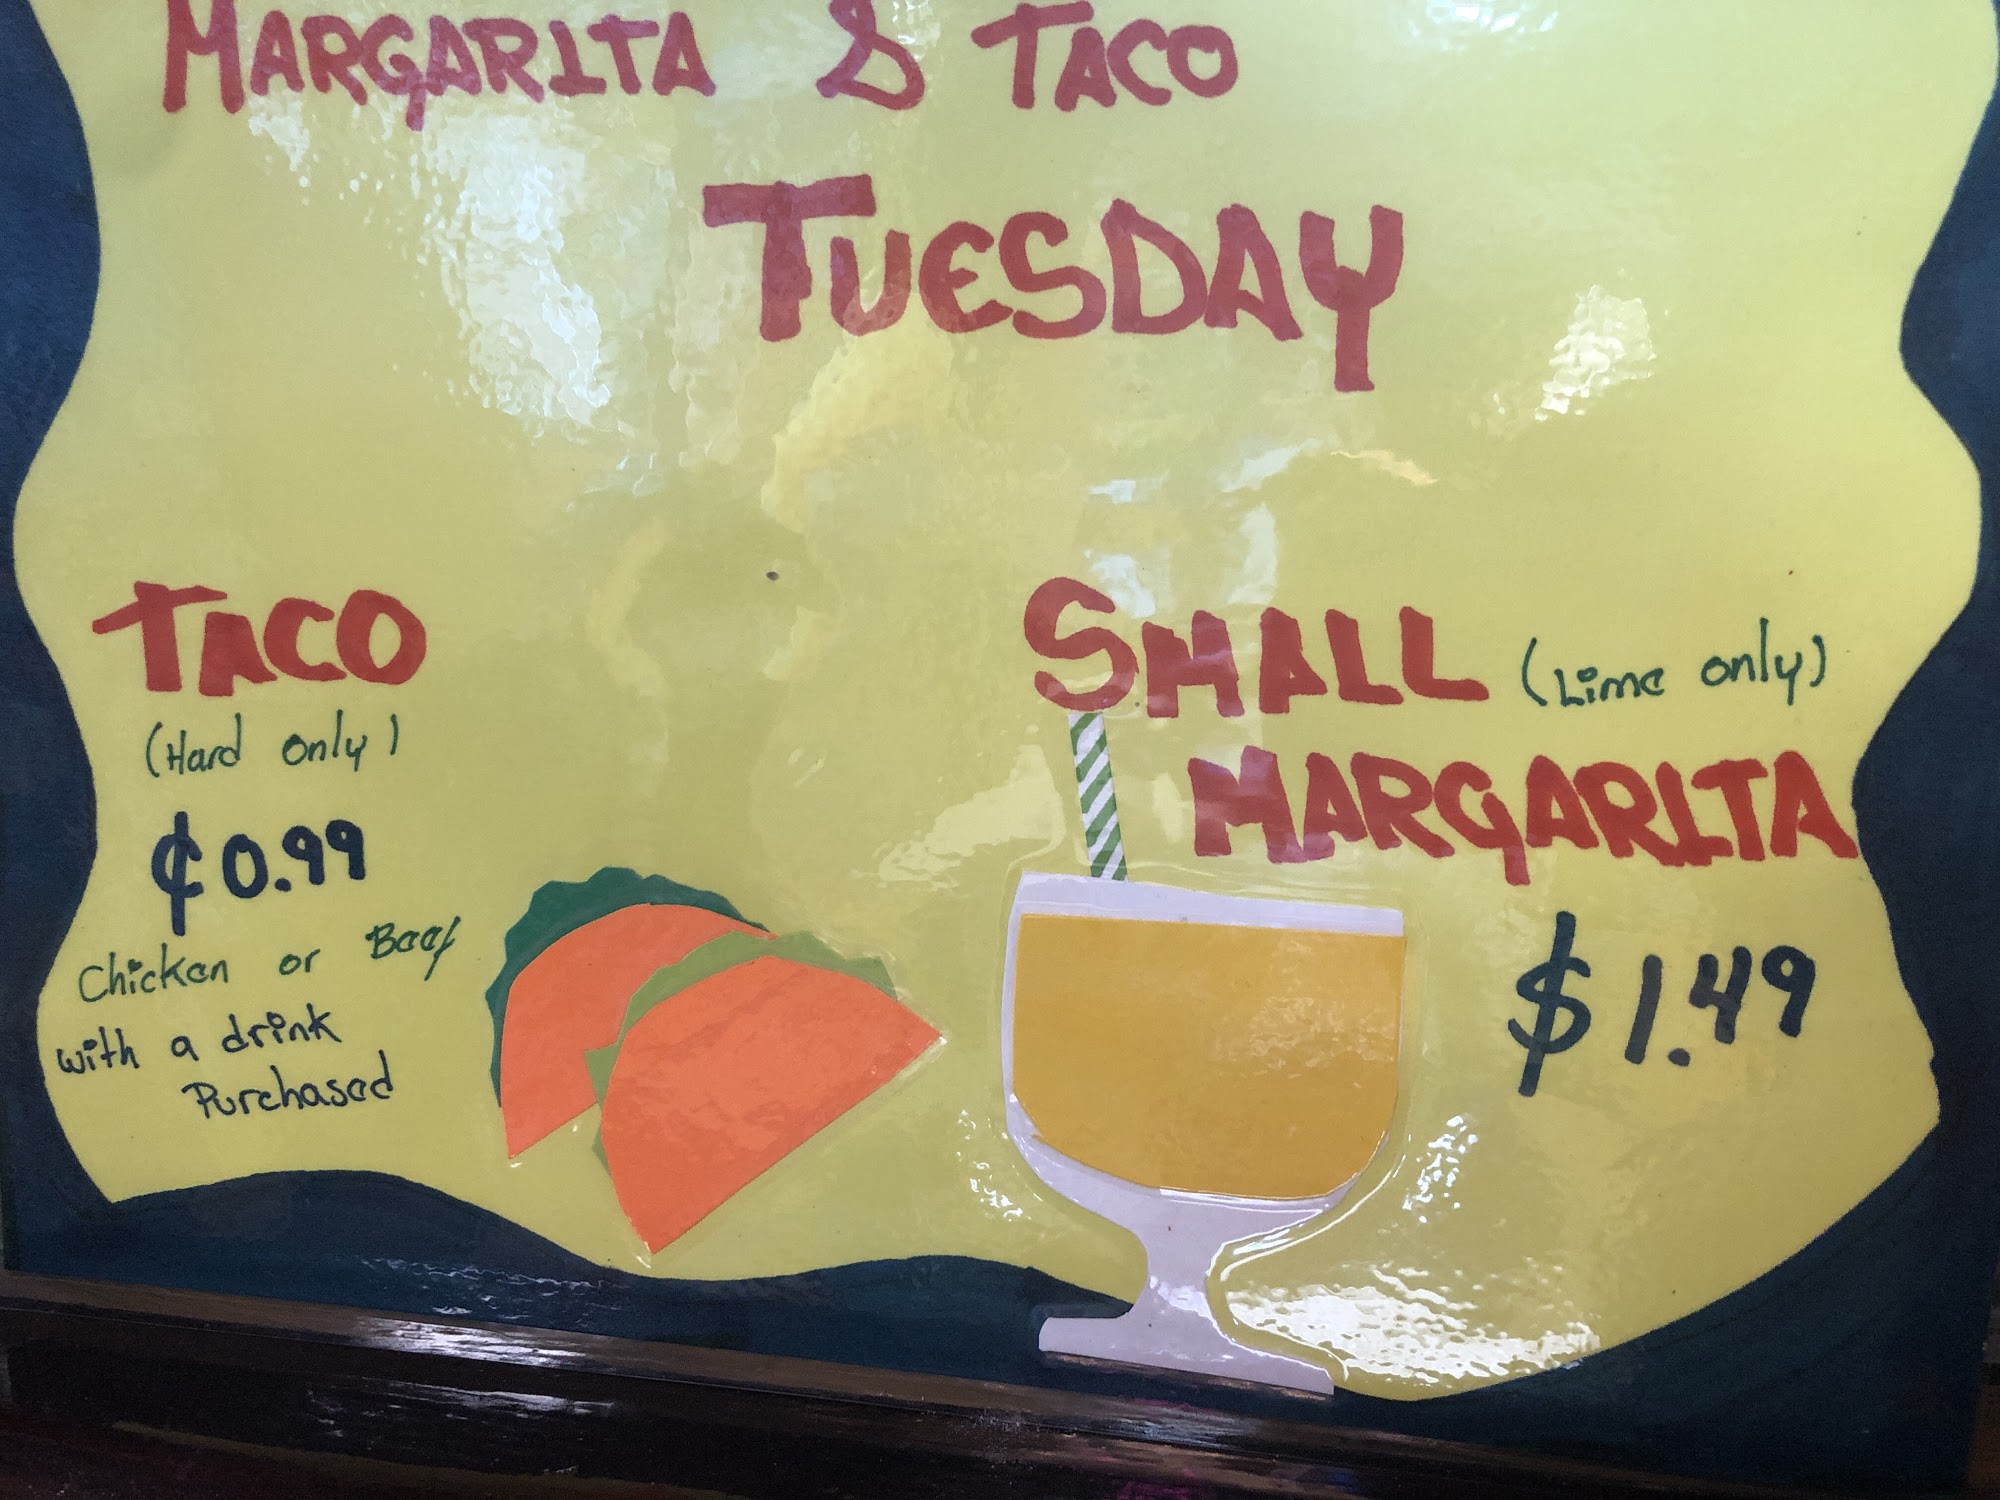 MARGARITA & TACO
TUESDAY
TACO
(Hard only)
¢0.99
Chicken or Beef
with a drink
Purchased
SMALL (Lime only)
MARGARITA
$1.49